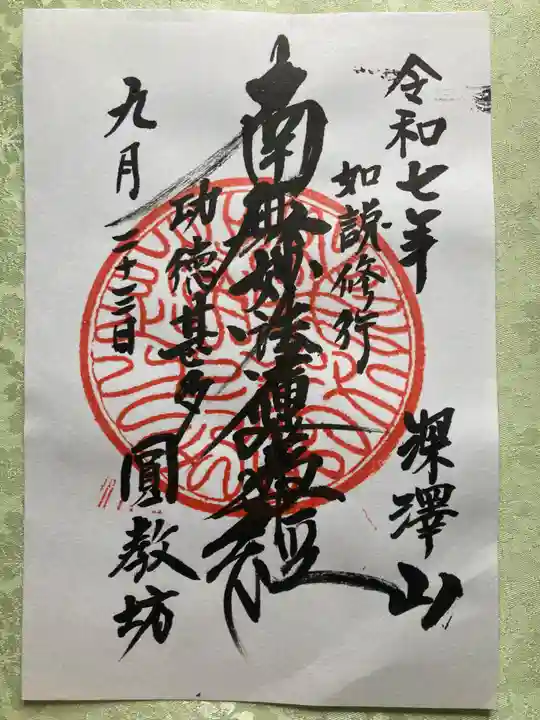 令和七年
深澤山
如說修行
南無妙法蓮華経
功德甚多
九月二十三日
圓教坊